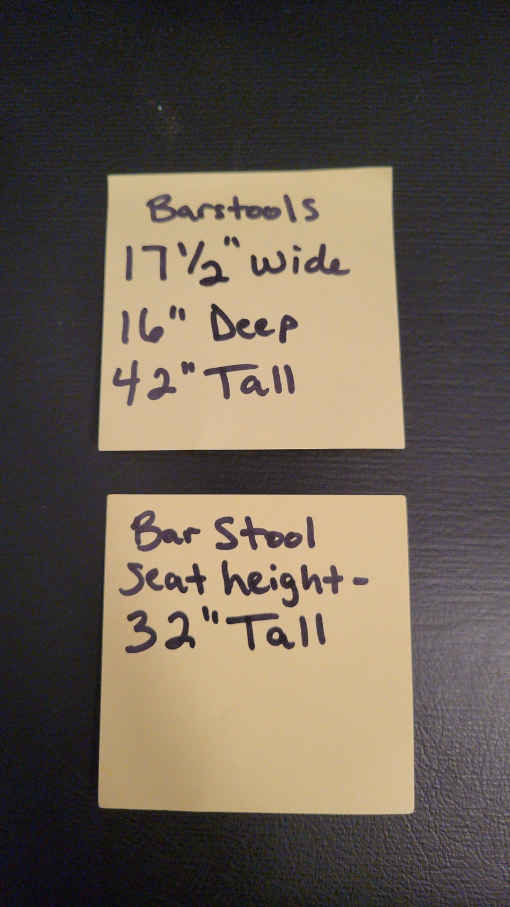 Barstools
17 1/2" Wide
16" Deep
42" Tall
Bar Stool
Seat height-
32" Tall